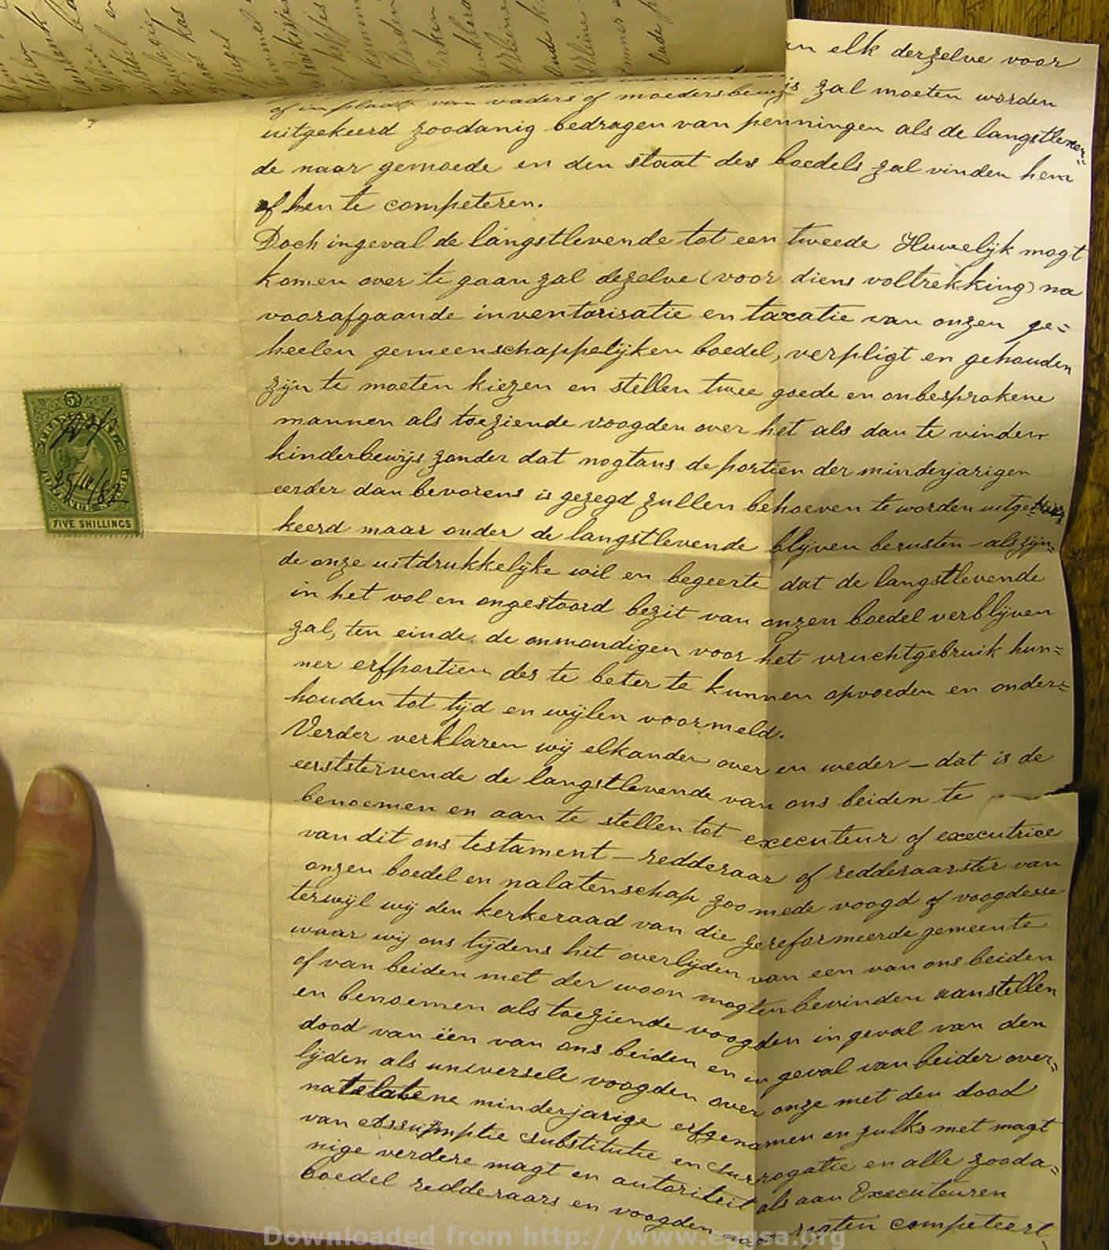 en elk derzelve voor
of in plaats van vaders of moedersbewijs zal moeten worden
uitgekeerd zoodanig bedragen van penningen als de langstleven=
de naar gemoede en den staat des boedels zal vinden hem
of hen te competeren.
Doch ingeval de langstlevende tot een tweede Huwelijk mogt
komen over te gaan zal dezelve (voor diens voltrekking) na
voorafgaande inventarisatie en taxatie van onzen ge=
heelen gemeenschappelijken boedel, verpligt en gehouden
zijn te moeten kiezen en stellen twee goede en onbesprokene
mannen als toeziende voogden over het als dan te vinden
kinderbewijs zonder dat nogtans de portien der minderjarigen
eerder dan bevorens is gezegd zullen behoeven te worden uitge
keerd maar onder de langstlevende blijven berusten – als zijn=
de onze uitdrukkelijke wil en begeerte dat de langstlevende
in het vol en ongestoord bezit van onzen boedel verblijven
zal, ten einde de onmondigen voor het vruchtgebruik hun=
ner erfportien des te beter te kunnen opvoeden en onder=
houden tot tijd en wijlen voormeld.
Verder verklaren wij elkander over en weder – dat is de
eerststervende de langstlevende van ons beiden te
benoemen en aan te stellen tot executeur of executrice
van dit ons testament – redderaar of redderaarster van
onzen boedel en nalatenschap zoomede voogd of voogdesse
terwijl wij den kerkeraad van die gereformeerde gemeente
waar wij ons tijdens het overlijden van een van ons beiden
of van beiden met der woon mogten bevinden aanstellen
en benoemen als toeziende voogden in geval van den
dood van één van ons beiden en in geval van beider over=
lijden als universele voogden over onze met den dood
natelatene minderjarige erfgenamen en zulks met magt
van Assumptie substitutie en Surrogatie en alle zooda=
nige verdere magt en autoriteit als aan Executeuren
boedel redderaars en voogden regten competeert
FIVE SHILLINGS
Downloaded from http://www.eggsa.org